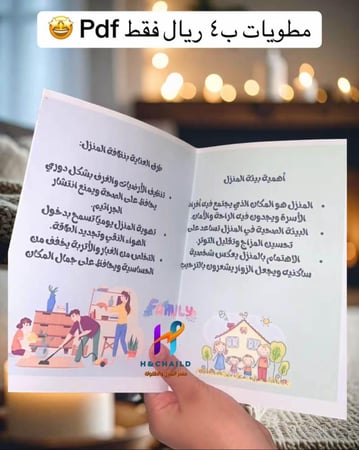 مطويات ب٤ ريال فقط Pdf 🤩
أهمية بيئة المنزل
المنزل هو المكان الذي يجتمع فيه أفراد
الأسرة ويجدون فيه الراحة والأمان.
البيئة الصحية في المنزل تساعد على
تحسين المزاج وتقليل التوتر.
الاهتمام بالمنزل يعكس شخصية
ساكنيه ويجعل الزوار يشعرون بالترحيب
طرق العناية بنظافة المنزل:
تنظيف الأرضيات والغرف بشكل دوري
يحافظ على الصحة ويمنع انتشار
الجراثيم.
تهوية المنزل يوميًا تسمح بدخول
الهواء النقي وتجديد الطاقة.
التخلص من الغبار والأتربة يخفف من
الحساسية ويحافظ على جمال المكان
FAMILY
H&CHAILD